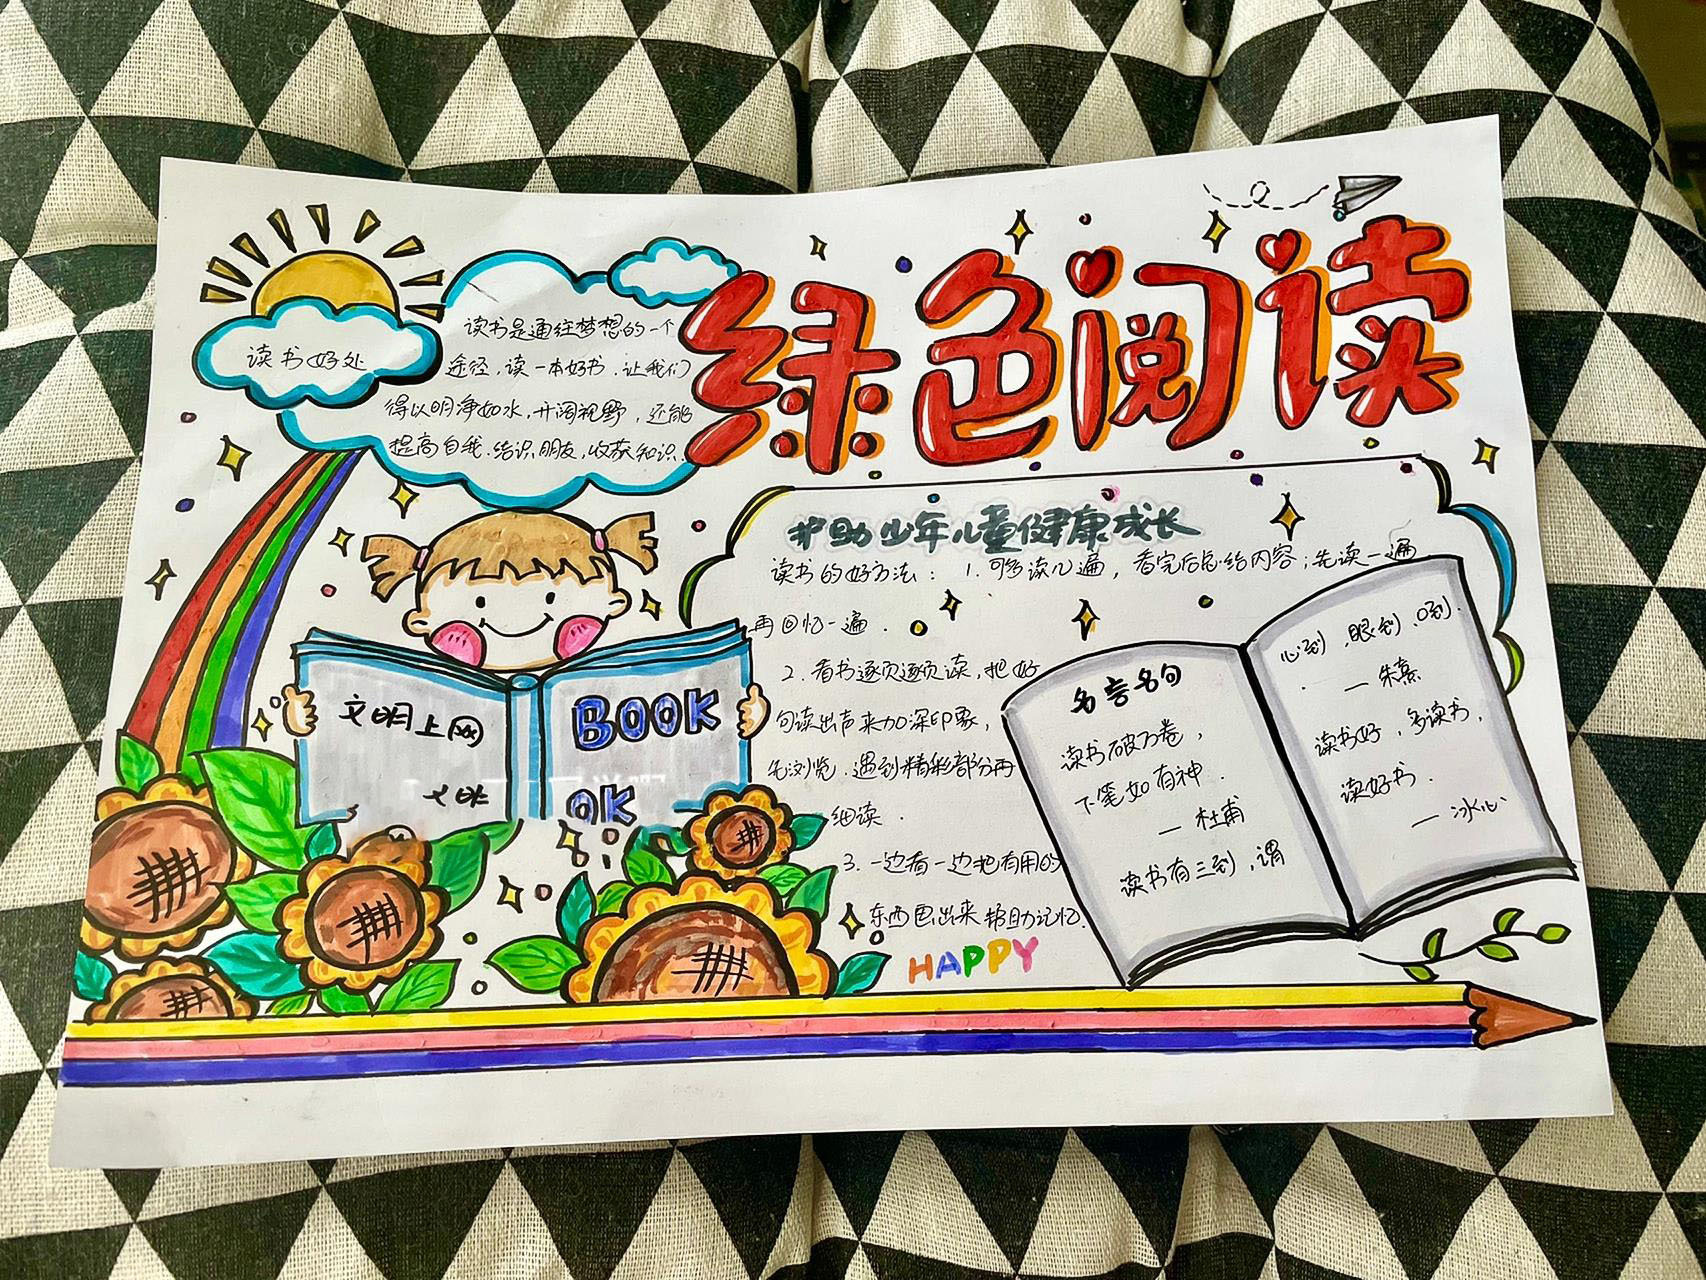 绿色阅读
读书好处
读书是通往梦想的一个
途径,读一本好书,让我们
得以明净如水,开阔视野,还能
提高自我.结识朋友,收获知识.
文明上网
BOOK
OK
护助少年儿童健康成长
读书的好方法: 1.可多读几遍,看完后总结内容;先读一遍
再回忆一遍.
2.看书逐页逐页读,把好
句读出声来加深印象,
先浏览.遇到精彩部分再
细读.
3.一边看一边把有用的
东西画出来帮助记忆.
HAPPY
名言名句
读书破万卷,
下笔如有神.
—杜甫
读书有三到,谓
心到,眼到,口到.
—朱熹
读书好,多读书,
读好书.
—冰心